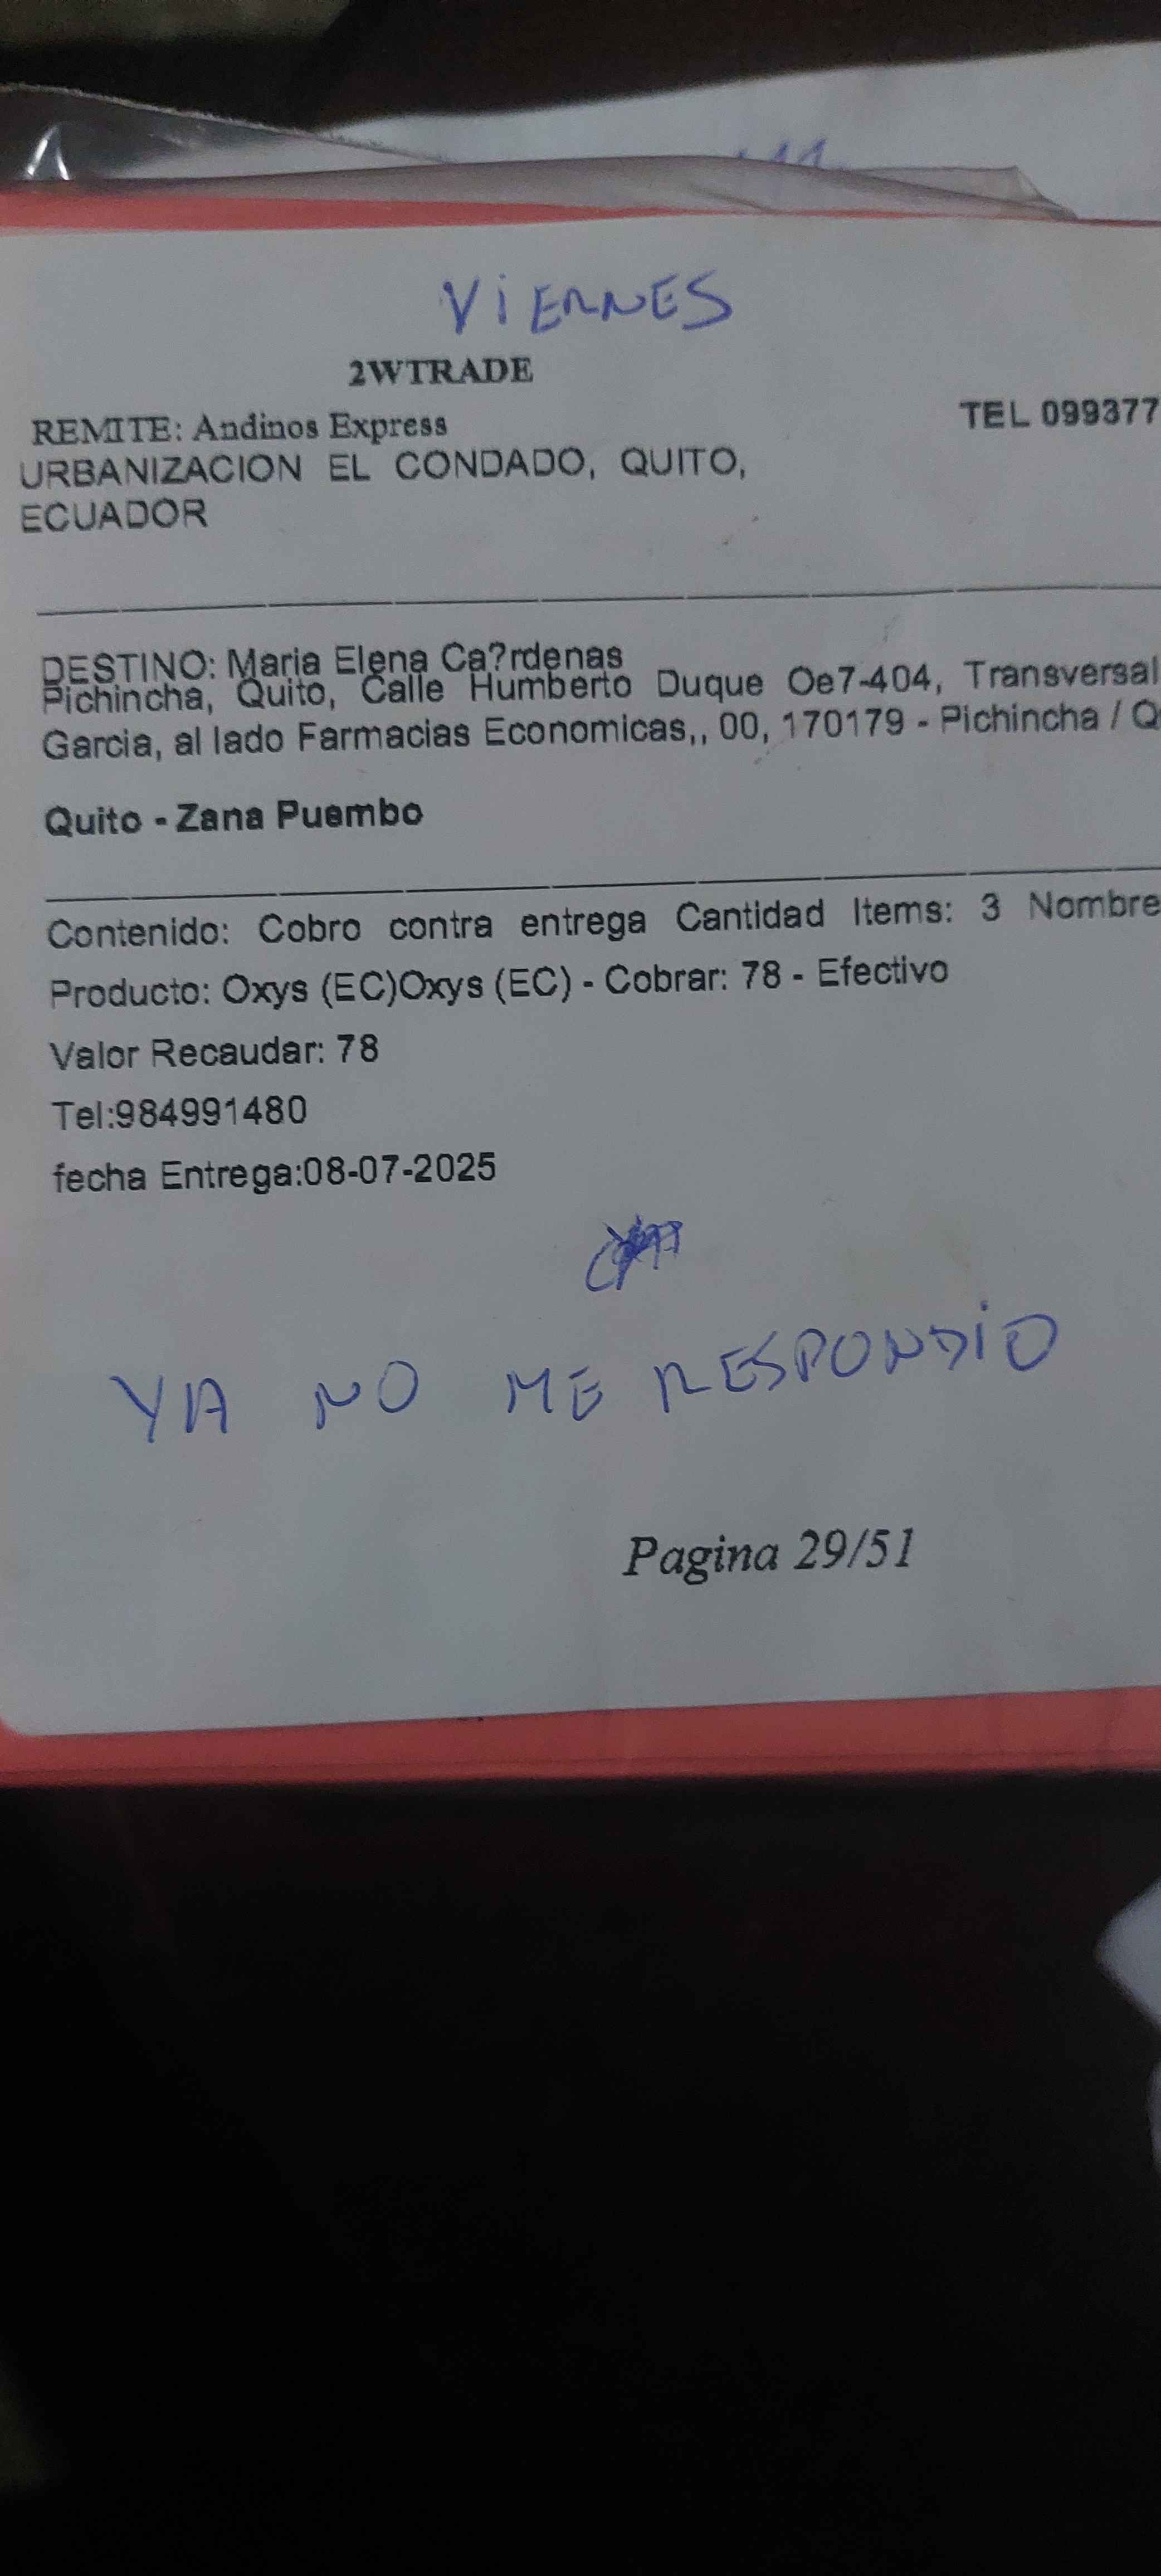 ViERNES
2WTRADE
REMITE: Andinos Express
TEL 099377
URBANIZACION EL CONDADO, QUITO,
ECUADOR
DESTINO: Maria Elena Ca?rdenas
Pichincha, Quito, Calle Humberto Duque Oe7-404, Transversal
Garcia, al lado Farmacias Economicas,, 00, 170179 - Pichincha / Q
Quito - Zana Puembo
Contenido: Cobro contra entrega Cantidad Items: 3 Nombre
Producto: Oxys (EC)Oxys (EC) - Cobrar: 78 - Efectivo
Valor Recaudar: 78
Tel:984991480
fecha Entrega:08-07-2025
YA NO ME RESPONDiO
Pagina 29/51